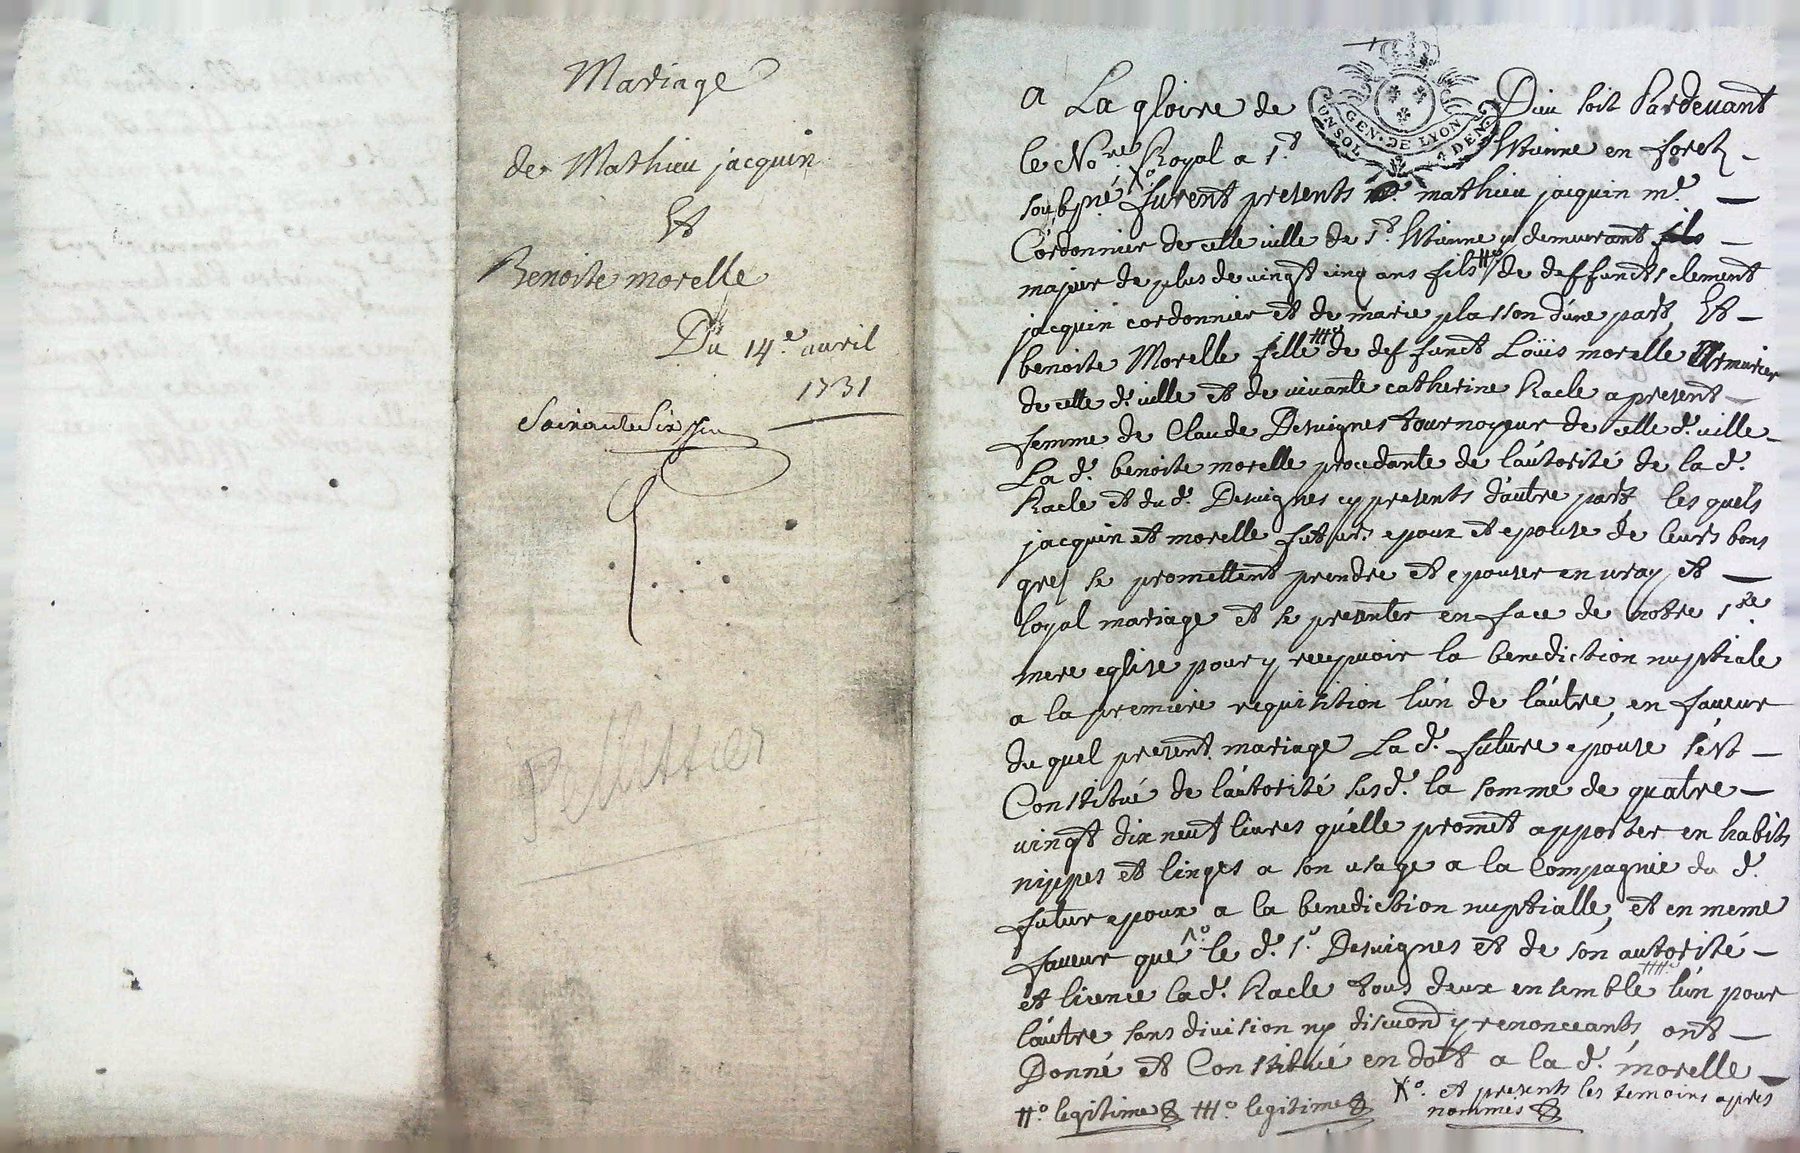 Mariage
de Mathieu jacquin
Et
Benoite morelle
Du 14.e avril
1731
Pelletier
a La gloire de Dieu soit Pardevant
GEN. DE LYON
CONSOL 4 DEN.
le No.re Royal a s.t Etienne en forest
soubsne X° furent presents mathieu jacquin m.e
Cordonnier de celle ville de s.t Etienne y demeurant
majeur de plus de vingt cinq ans fils #° de deffuncts clement
jacquin cordonnier et de marie plasson d'une part, Et
benoite Morelle fille ##° de deffunct Loüis morelle Armurier
de celle d. ville et de vivante catherine Racle a present
femme de Claude Desvignes tournoyeur de celle d. ville
La d. benoite morelle procedante de l'autorité de la d.
Racle et du d. Desvignes cy presents d'autre part, les quels
jacquin et morelle futurs epoux et epouse de leurs bons
grez se promettent prendre et epouser en vray et
loyal mariage et se presenter en face de notre s.te
mere eglise pour y recepvoir la benediction nuptiale
a la premiere requisition l'un de l'autre, en faveur
du quel present mariage La d. future epouse s'est
Constitué de l'autorité susd. la somme de quatre
vingt dix neuf livres qu'elle promet apporter en habits
nippes et linges a son usage a la Compagnie du d.
futur epoux a la benediction nuptialle, et en meme
faveur que le d. s.r Desvignes et de son autorité
et licence la d. Racle tous deux ensemble l'un pour
l'autre sans division ny discuon y renonceants, ont
Donné et Constitué en dott a la d. morelle
#° legitime ##° legitime X° et presents les temoins apres
nommes